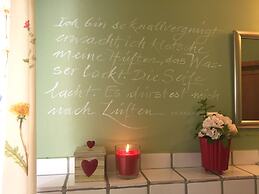 Ich bin so knallvergnügt
erwacht, ich klatsche
meine Hüften, das Was-
ser lockt. Die Seife
lacht. Es dürstet mich
nach Lüften......